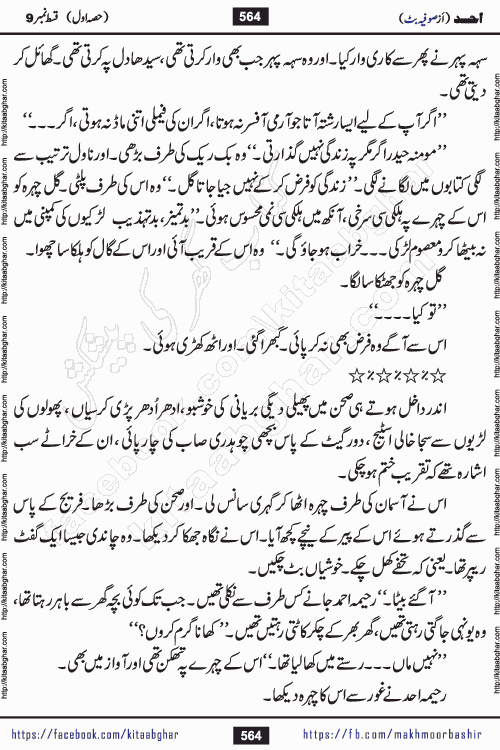 احمد (از صوفیہ بٹ) 564 (حصہ اول) قسط نمبر 9
سہہ پہر نے پھر سے کاری وار کیا۔ اور وہ سہہ پہر جب بھی وار کرتی تھی، سیدھا دل پہ کرتی تھی۔ گھائل کر
دیتی تھی۔
’’اگر آپ کے لیے ایسا رشتہ آتا جو آرمی آفسر نہ ہوتا، اگر ان کی فیملی اتنی ماڈ نہ ہوتی، اگر۔۔۔‘‘
’’مومنہ حیدر اگر مگر پہ زندگی نہیں گذارتی۔‘‘ وہ بک ریک کی طرف بڑھی۔ اور ناول ترتیب سے
لگی کتابوں میں لگانے لگی۔ ’’زندگی کو فرض کر کے نہیں جیا جاتا گل۔‘‘ وہ اس کی طرف پلٹی۔ گل چہرہ کو
اس کے چہرے پہ ہلکی سی سرخی، آنکھ میں ہلکی سی نمی محسوس ہوئی۔ ’’بدتمیز، بدتہذیب لڑکیوں کی کمپنی میں
نہ بیٹھا کرو معصوم لڑکی۔۔۔ خراب ہو جاؤ گی۔‘‘ وہ اس کے قریب آئی اور اس کے گال کو ہلکا سا چھوا۔
گل چہرہ کو جھٹکا سا لگا۔
’’تو کیا۔۔۔۔‘‘
اس سے آگے وہ فرض بھی نہ کر پائی۔ گھبرا گئی۔ اور اٹھ کھڑی ہوئی۔
☆٪☆٪☆٪☆
اندر داخل ہوتے ہی صحن میں پھیلی دیگی بریانی کی خوشبو، ادھر اُدھر پڑی کرسیاں، پھولوں کی
لڑیوں سے سجا خالی اسٹیج، دور گیٹ کے پاس بچھی چوہدری صاب کی چارپائی، ان کے خراٹے سب
اشارہ تھے کہ تقریب ختم ہو چکی۔
اس نے آسمان کی طرف چہرہ اٹھا کر گہری سانس لی۔ اور صحن کی طرف بڑھا۔ فریج کے پاس
سے گذرتے ہوئے اس کے پیر کے نیچے کچھ آیا۔ اس نے نگاہ جھکا کر دیکھا۔ وہ چاندی جیسا ایک گفٹ
ریپر تھا۔ یعنی کہ تحفے کھل چکے۔ خوشیاں بٹ چکیں۔
’’آ گئے بیٹا۔‘‘ رحیمہ احمد جانے کس طرف سے نکلی تھیں۔ جب تک کوئی بچہ گھر سے باہر رہتا تھا،
وہ یونہی جاگتی رہتی تھیں، گھر بھر کے چکر کاٹتی رہتیں تھیں۔ ’’کھانا گرم کروں؟‘‘
’’نہیں ماں۔۔۔ رستے میں کھا لیا تھا۔‘‘ اس کے چہرے پہ تھکن تھی اور آواز میں بھی۔
رحیمہ احمد نے غور سے اس کا چہرہ دیکھا۔
https://facebook.com/kitaabghar 564 https://fb.com/makhmoorbashir
http://kitaabghar.com